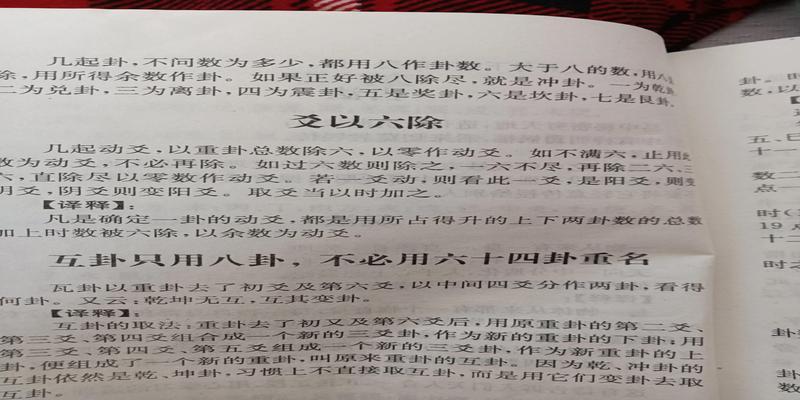 几起卦，不问数为多少，都用八作卦数。大于八的数，用八
除，用所得余数作卦。如果正好被八除尽，就是冲卦。一为乾
二为兑卦，三为离卦，四为震卦，五是奖卦，六是坎卦，七是艮卦，
爻以六除
几起动爻，以重卦总数除六，以零作动爻。如不满六，止用此
数为动爻，不必再除。如过六数则除之，一六不尽，再除二六、三
六，直除尽以零数作动爻。若一爻动，则看此一爻，是阳爻，则变
阴爻，阴爻则变阳爻。取爻当以时加之。
【译释】：
凡是确定一卦的动爻，都是用所占得升的上下两卦数的总数
加上时数被六除，以余数为动爻。
互卦只用八卦，不必用六十四卦重名
瓦卦以重卦去了初爻及第六爻，以中间四爻分作两卦，看得
何卦。又云：乾坤无互，互其变卦。
【译释】：
互卦的取法：重卦去了初又及第六爻后，用原重卦的第二爻、
第三爻、第四爻组合成一个新的三爻卦，作为新的重卦的下卦；用
第三爻、第四爻、第五爻组成一个新的三爻卦，作为新重卦的上
卦，便组成了一个新的重卦，叫原来重卦的互卦。因为乾、冲卦的
互卦依然是乾、坤卦，习惯上不直接取互卦，而是用它们变卦去取
互卦。
卦。时
数，以
五、巳
十一
数二
点一
时（
19点
十二
时之
卦
卦
数